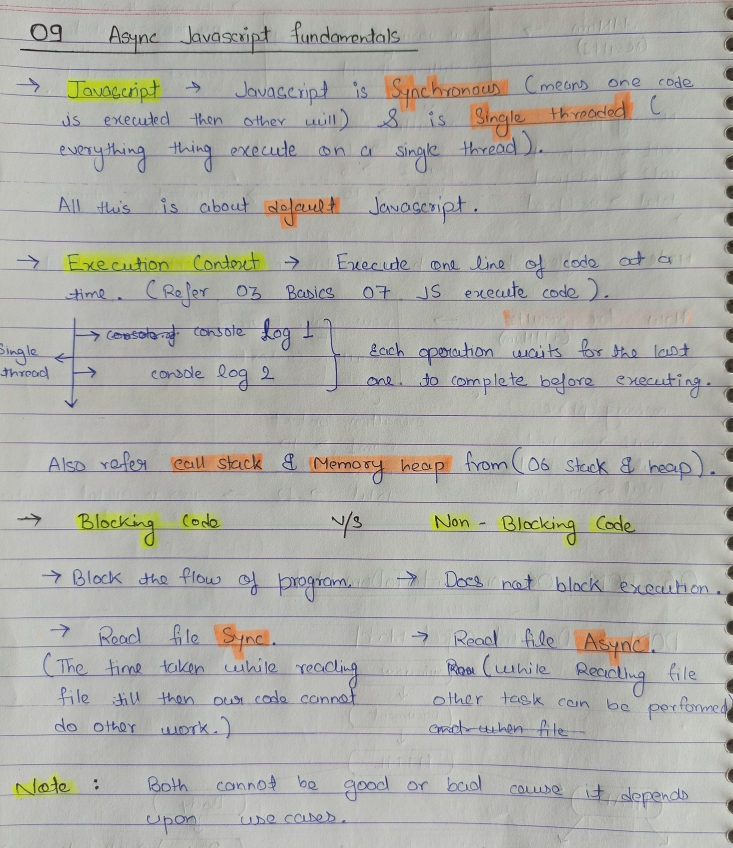 09 Async Javascript fundamentals
→ Javascript → Javascript is Synchronous (means one code
is executed then other will) & is Single threaded (
everything thing execute on a single thread).
All this is about default Javascript.
→ Execution Context → Execute one line of code at a
time. (Refer 03 Basics 07 JS execute code).
→ console log 1
Single thread
→ console log 2
Each operation waits for the last
one to complete before executing.
Also refer call stack & Memory heap from (06 stack & heap).
→ Blocking Code V/S Non - Blocking Code
→ Block the flow of program. → Does not block execution.
→ Read file Sync. → Read file Async.
(The time taken while reading (while Reading file
file till then our code cannot other task can be performed
do other work.) and when file
Note : Both cannot be good or bad cause it depends
upon use cases.